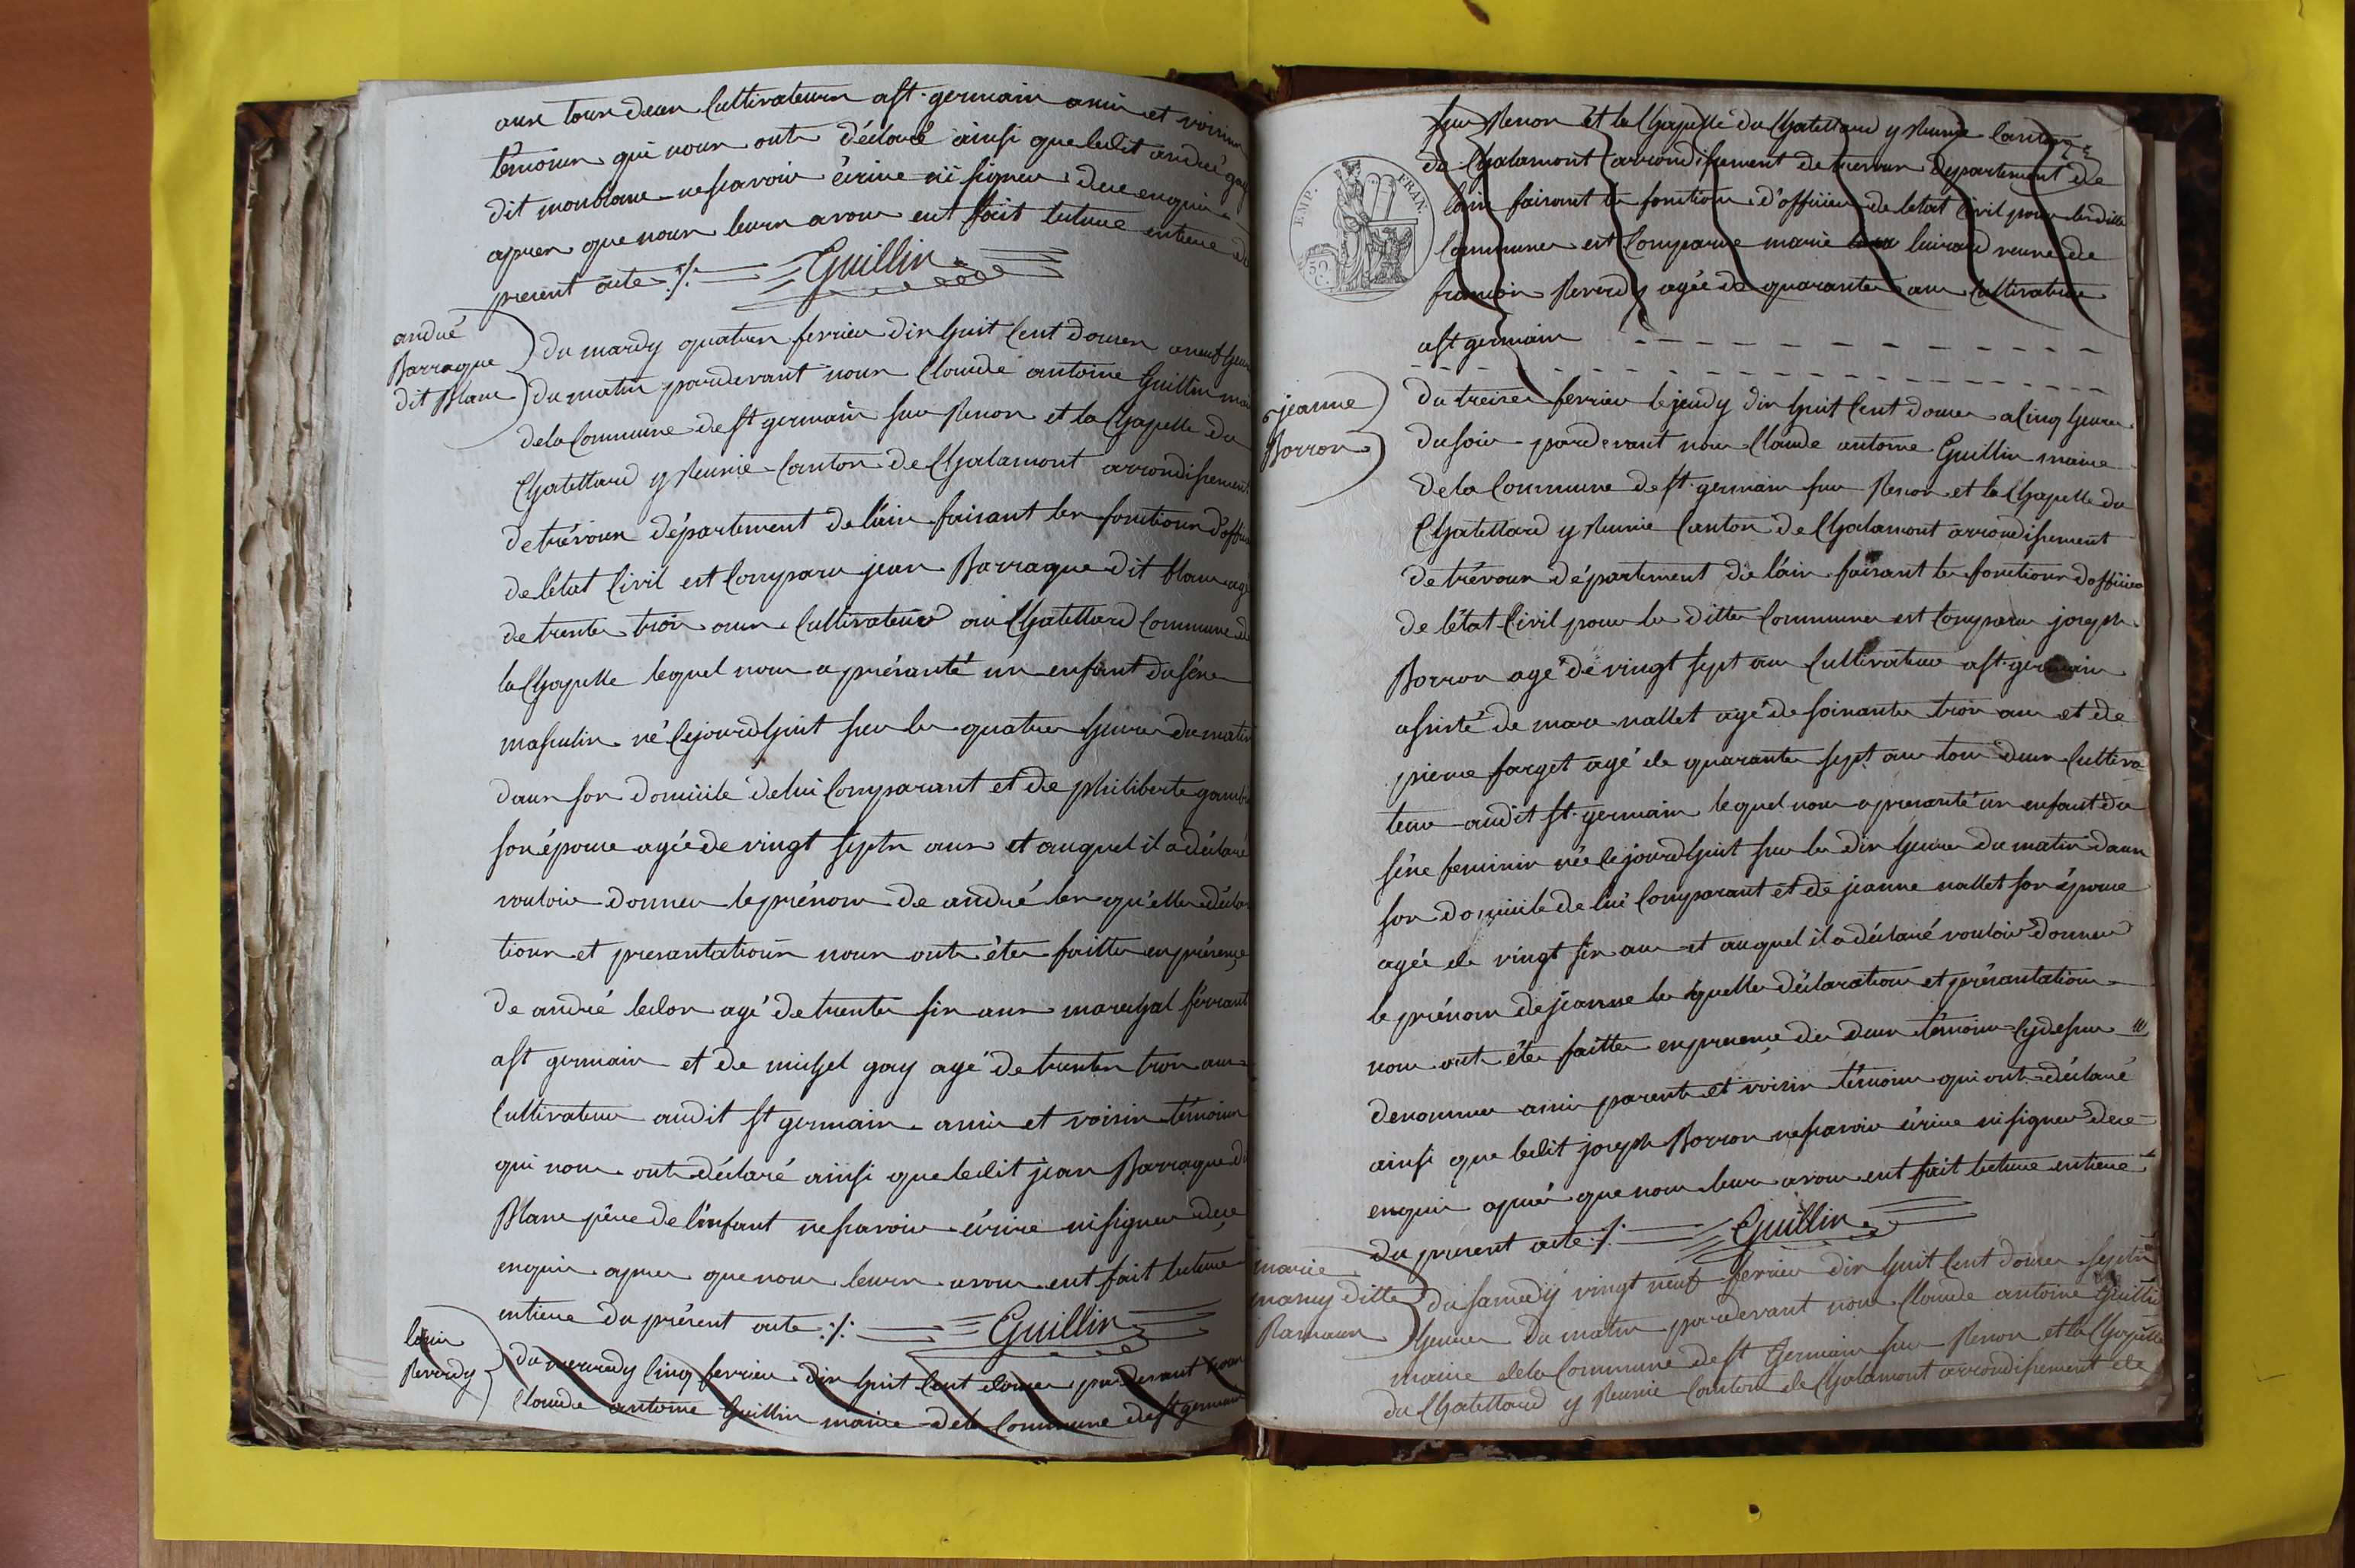 ans tous deux cultivateurs a st. germain amis et voisins
témoins qui nous ont déclaré ainsi que ledit andré gay
dit monblanc ne scavoir écrire ni signer de ce enquis
apres que nous leurs avons eut fait lecture entiere du
present acte ./. Guillin
andré
Barraque
dit Blanc
du mardy quatres fevrier dix huit cent douzes a neuf heures
du matin pardevant nous Claude antoine Guillin maire
de la Commune de st germain sur Renon et la Chapelle du
Chatellard y Reunie Canton de Chalamont arrondissement
de trévoux département de l'ain faisant les fonctions d'officier
de l'état Civil est Comparu jean Barraque dit blanc agé
de trente trois ans Cultivateur au Chatellard Commune de
la Chapelle lequel nous a présanté un enfant du séxe
masculin né cejourd'huit sur les quatres heures du matin
dans son domicile de lui Comparant et de philiberte
son épouse agée de vingt septs ans et auquel il a déclaré
vouloir donner le prénom de andré les qu'elles déclara
tions et presantations nous ont étes faittes en présence
de andré ledon agé de trente six ans marechal férrant
a st germain et de michel gay agé de trentes trois ans
Cultivateur audit st germain amis et voisin témoins
qui nous ont déclaré ainsi que ledit jean Barraque dit
Blanc pére de l'enfant ne scavoir écrire ni signer de ce
enquis apres que nous leurs avons eut fait lecture
entiere du présent acte ./. Guillin
louis
Reverdy
du mercredy Cinq fevrier dix huit Cent douzes par devant nous
Claude antoine Guillin maire de la Commune de st germain
sur Renon et la Chapelle du Chatellard y Reunie Canton
de Chalamont arrondissement de trevoux departement de
l'ain faisant les fonctions d'officier de l'etat Civil pour lesdittes
Communes est Comparue marie veuve de
francois Reverdy agée de quarantes ans Cultivatrice
a st germain
jeanne
Borron
du treizes fevrier le jeudy dix huit Cent douzes a Cinq heures
du soir pardevant nous Claude antoine Guillin maire
de la Commune de st. germain sur Renon et la Chapelle du
Chatellard y Reunie Canton de Chalamont arrondissement
de trévoux département de l'ain faisant les fonctions d'officier
de l'état Civil pour les dittes Communes est Comparu joseph
Borron agé de vingt sept ans Cultivateur a st. germain
assisté de marc nallet agé de soixantes trois ans et de
pierre farget agé de quarantes sept ans tous deux Cultiva
teurs audit st. germain lequel nous a presanté un enfant du
séxe feminin née cejourd'huit sur les dix heures du matin dans
son domicile de lui Comparant et de jeanne nallet son épouse
agée de vingt six ans et auquel il a déclaré vouloir donner
le prénom de jeanne les quelles déclarations et présantations
nous ont étes faittes en presence des deux témoins cy dessus
denommes amis parents et voisin témoins qui ont déclaré
ainsi que ledit joseph Borron ne scavoir écrire ni signer de ce
enquis aprés que nous leurs avons eut fait lecture entiere
du present acte ./. Guillin
marie
nancy ditte
Rameaux
du samedy vingt neuf fevrier dix huit Cent douzes septs
heures du matin pardevant nous Claude antoine Guillin
maire de la Commune de st Germain sur Renon et la Chapelle
du Chatellard y Reunie Canton de Chalamont arrondissement de
EMP. FRAN.
50 C.